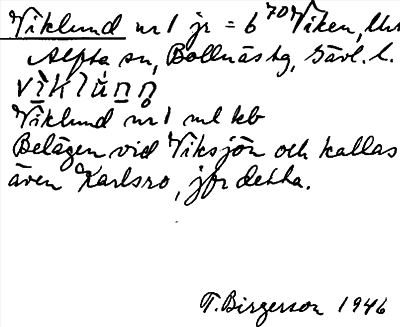 Viklund nr 1 jr = b 70 Viken,
Alfta sn, Bollnäs tg, Gävl. l.
Viklund nr 1 ml kb
Belägen vid Viksjön och kallas
även Karlsro, jfr detta.
T. Birgerson 1946